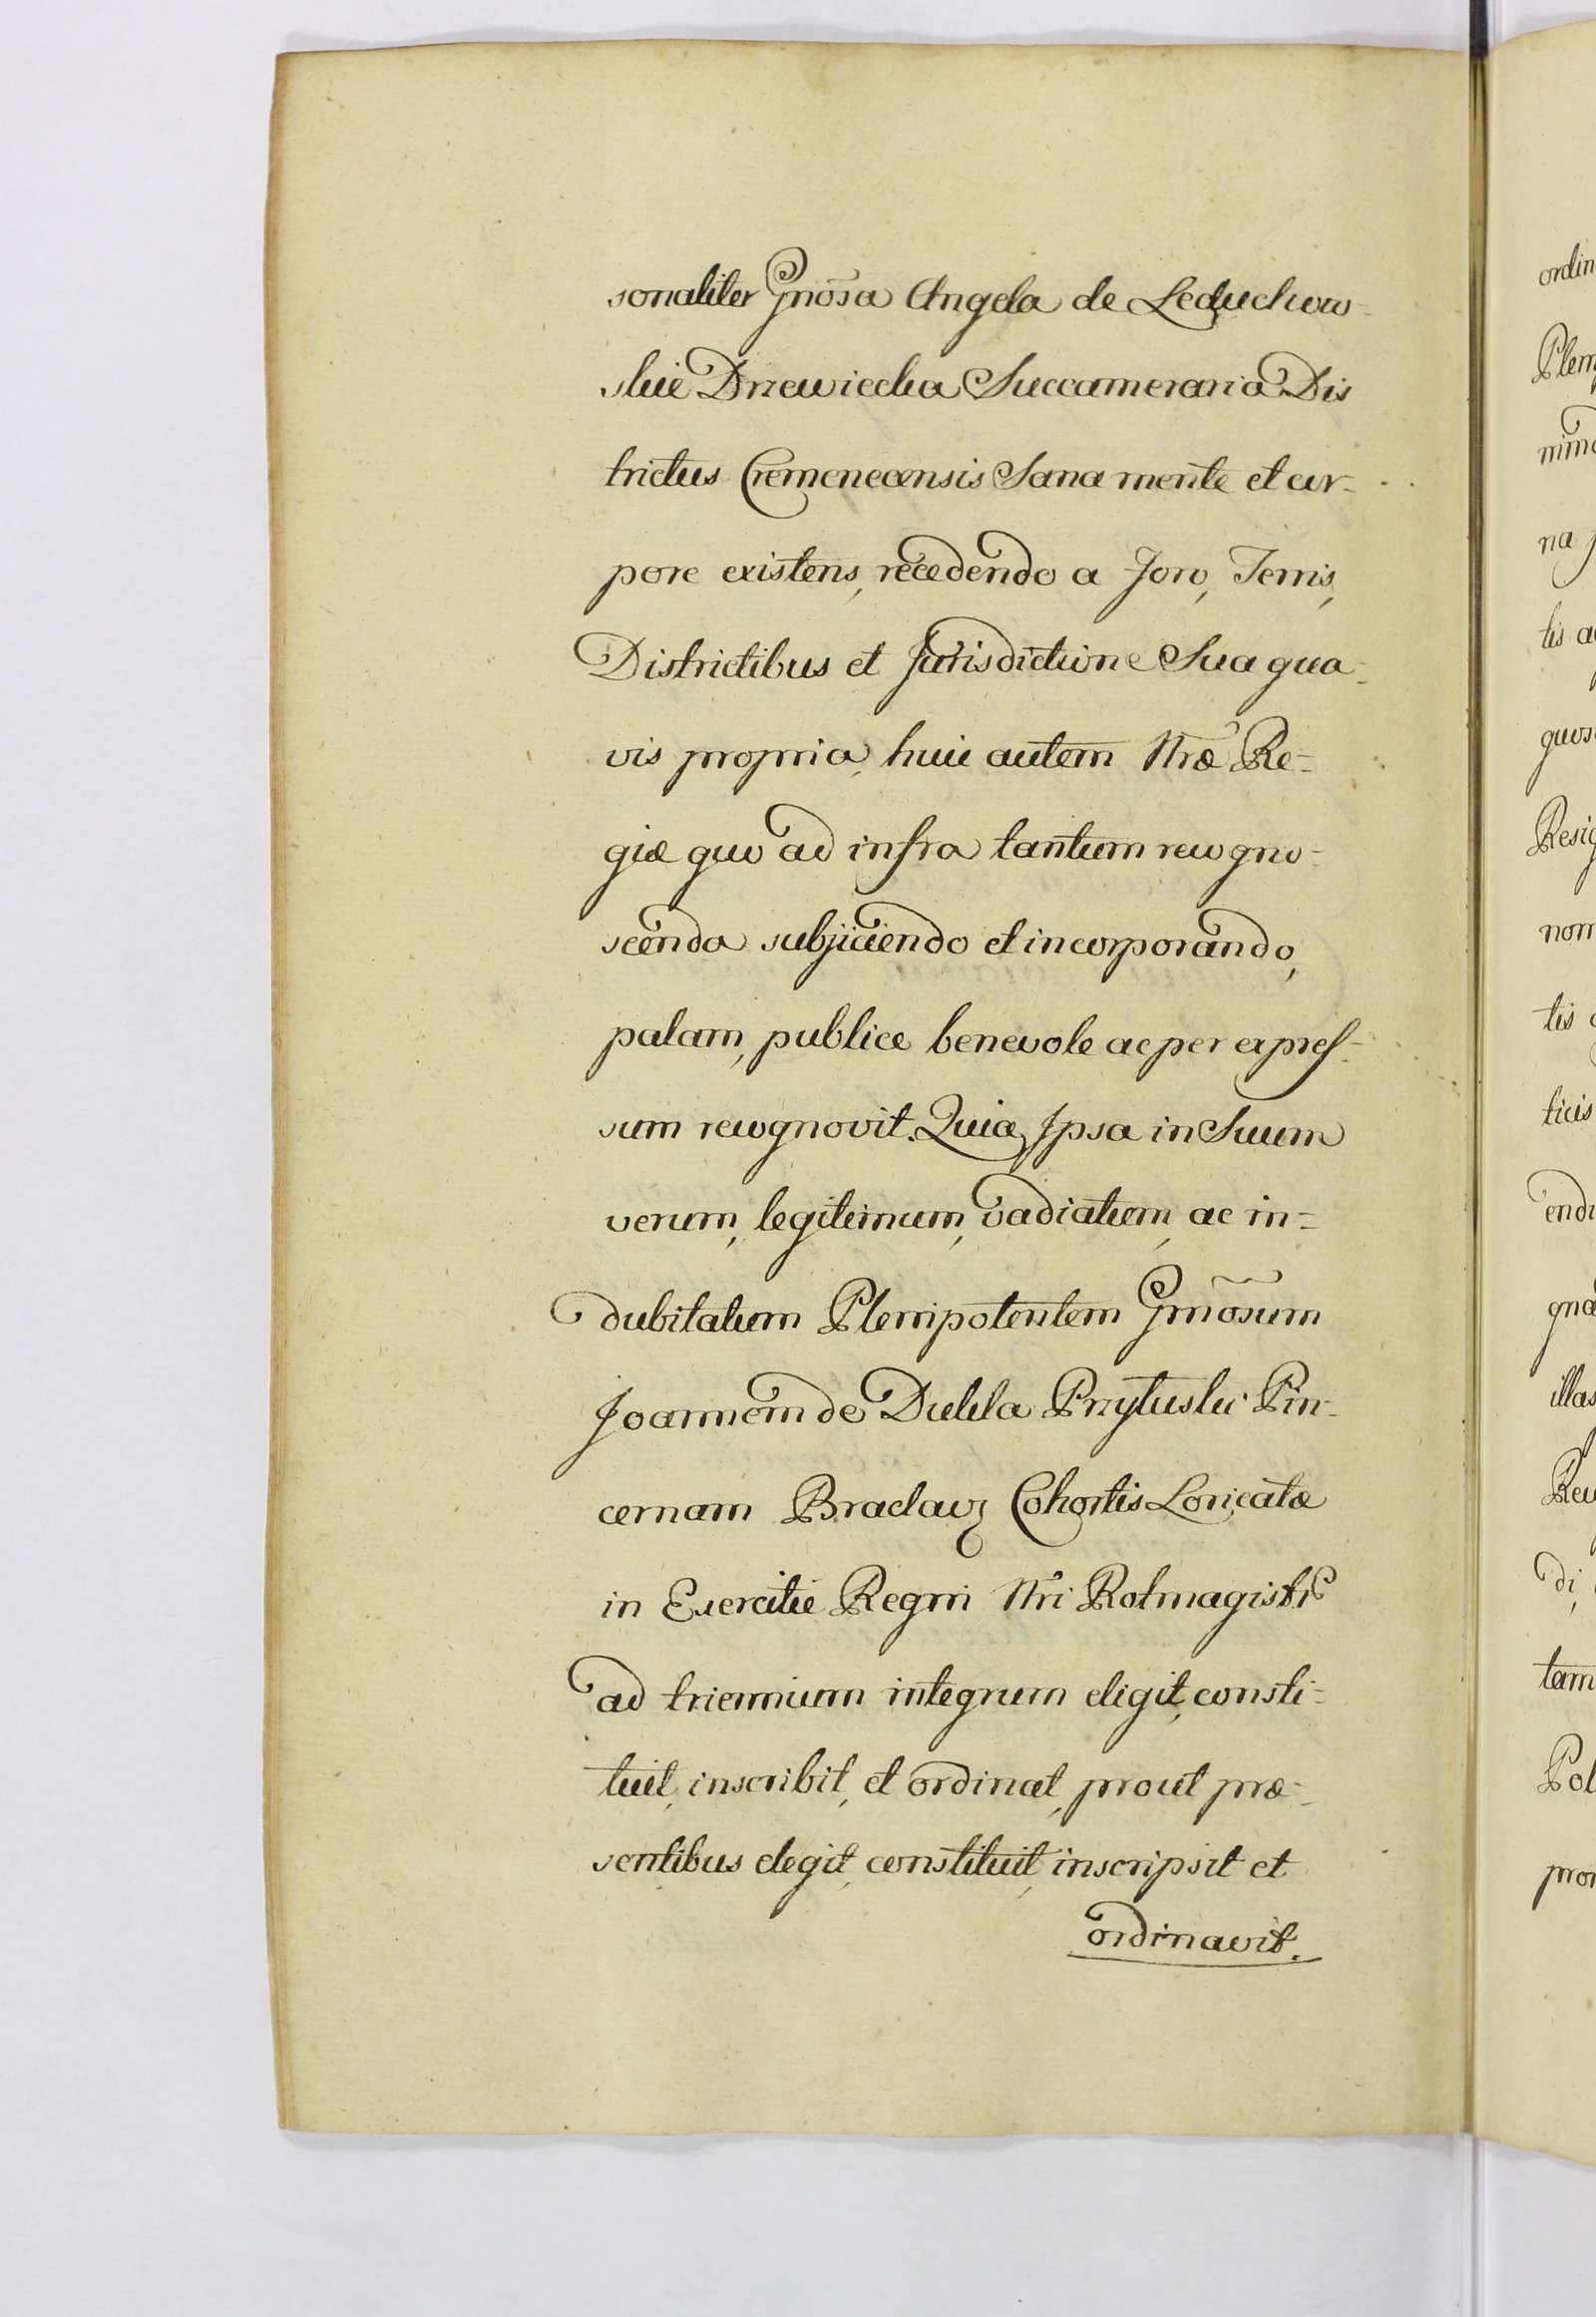 sonaliter Gnõsa Angela de Leduchow-
skie Drzewiecka Succameraria Dis
trictus Cremenecensis Sana mente et cor-
pore existens, recedendo a Foro, Terris,
Districtibus et Jurisdictione Sua qua-
vis propria, huic autem Nræ Re=
giæ quo ad infra tantum recogno=
scenda subjiciendo et incorporando,
palam, publice benevole ac per expres-
sum recognovit. Quia Ipsa in Suum
verum, legitimum, vadiatum, ac in=
dubitatum Plenipotentem Gnõsum
Joannem de Dukla Przyłuski Pin-
cernam Braclav Cohortis Loricatæ
in Exercitu Regni Nri Rotmagistr
ad triennium integrum eligit, consti=
tuit, inscribit, et ordinat, prout præ-
sentibus elegit, constituit, inscripsit et
ordinavit.
ordin
Plen
nimo
na
tis a
quos
Resig
nom
tis
ticis
endi
gnæ
illas
Rec
di,
tam
Pol
pror